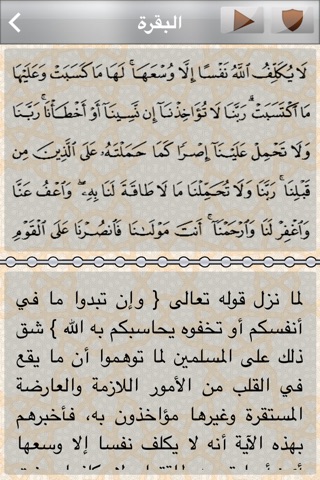 البقرة
لَا يُكَلِّفُ ٱللَّهُ نَفْسًا إِلَّا وُسْعَهَا ۚ لَهَا مَا كَسَبَتْ وَعَلَيْهَا
مَا ٱكْتَسَبَتْ ۗ رَبَّنَا لَا تُؤَاخِذْنَآ إِن نَّسِينَآ أَوْ أَخْطَأْنَا ۚ رَبَّنَا
وَلَا تَحْمِلْ عَلَيْنَآ إِصْرًا كَمَا حَمَلْتَهُۥ عَلَى ٱلَّذِينَ مِن
قَبْلِنَا ۚ رَبَّنَا وَلَا تُحَمِّلْنَا مَا لَا طَاقَةَ لَنَا بِهِۦ ۖ وَٱعْفُ عَنَّا
وَٱغْفِرْ لَنَا وَٱرْحَمْنَآ ۚ أَنتَ مَوْلَىٰنَا فَٱنصُرْنَا عَلَى ٱلْقَوْمِ
لما نزل قوله تعالى { وإن تبدوا ما في
أنفسكم أو تخفوه يحاسبكم به الله } شق
ذلك على المسلمين لما توهموا أن ما يقع
في القلب من الأمور اللازمة والعارضة
المستقرة وغيرها مؤاخذون به، فأخبرهم
بهذه الآية أنه لا يكلف نفسا إلا وسعها